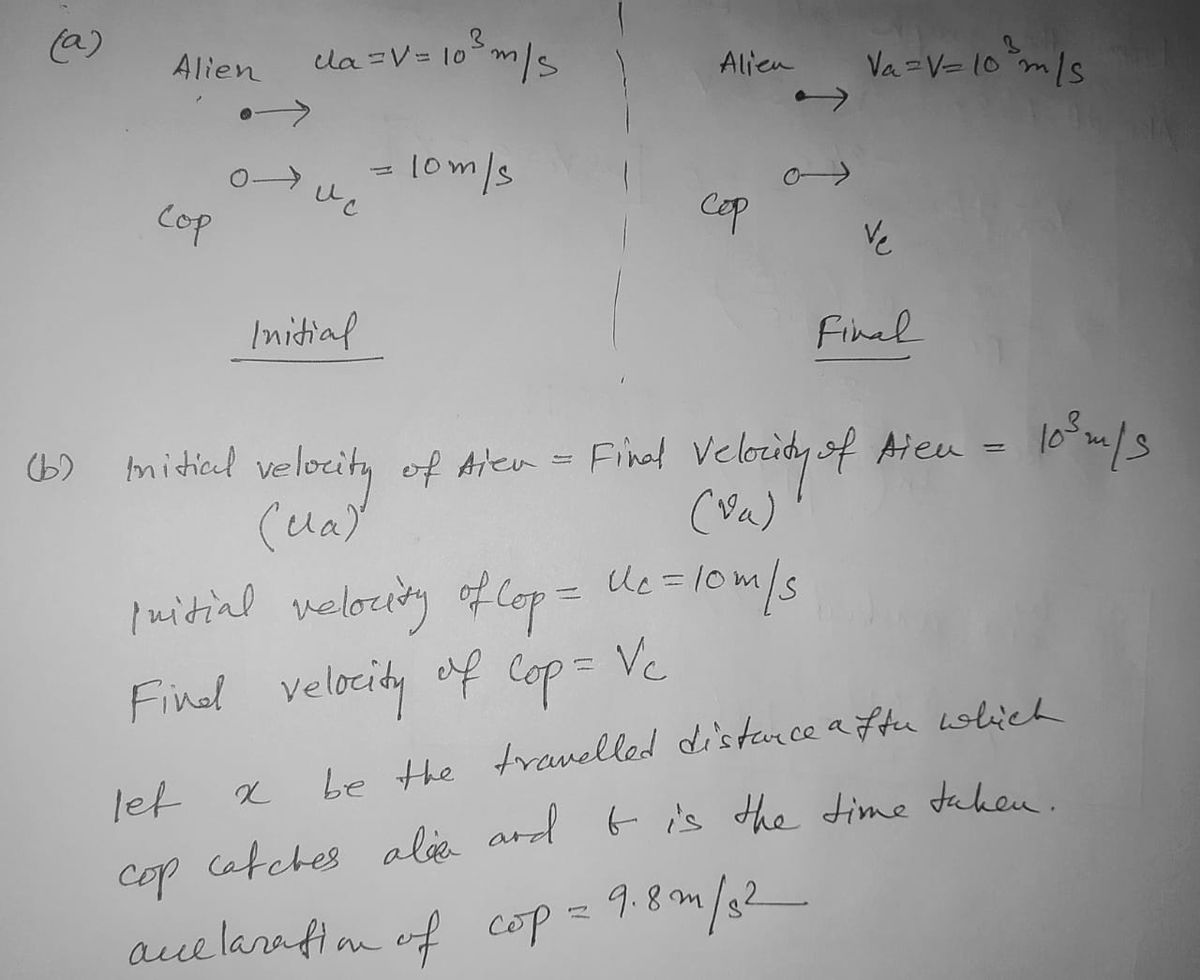 (a)
Alien ua = V = 10³ m/s
Alien Va = V = 10³ m/s
uc = 10 m/s
Cop
Cop
Vc
Initial
Final
(b) Initial velocity of Aien = Final Velocity of Aien = 10³ m/s
(ua) (va)
Initial velocity of Cop = uc = 10 m/s
Final velocity of Cop = Vc
let x be the travelled distance after which
cop catches alien and t is the time taken.
accelaration of cop = 9.8 m/s2